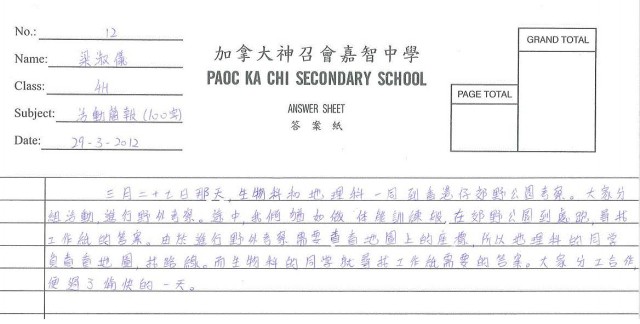 No.: 12
Name: 梁淑儀
Class: 4H
Subject: 活動簡報(100字)
Date: 29-3-2012
加拿大神召會嘉智中學
PAOC KA CHI SECONDARY SCHOOL
ANSWER SHEET
答案紙
PAGE TOTAL
GRAND TOTAL
三月二十七日那天,生物科和地理科一同到香港仔郊野公園考察。大家分
組活動,進行野外考察。途中,我們猶如做體能訓練般,在郊野公園到處跑,尋找
工作紙的答案。由於進行野外考察需要查看地圖上的座標,所以地理科的同學
負責看地圖,找路線。而生物科的同學就尋找工作紙需要的答案。大家分工合作,
便過了愉快的一天。